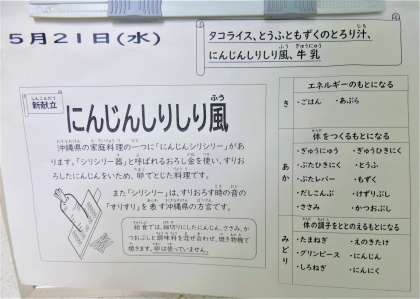 5月21日(水)
タコライス、とうふともずくのとろり汁、
にんじんしりしり風、牛乳
新献立
にんじんしりしり風
沖縄県の家庭料理の一つに「にんじんシリシリー」があ
ります。「シリシリー器」と呼ばれるおろし金を使い、すりお
ろしたにんじんをいため、卵でとじた料理です。
また「シリシリー」は、すりおろす時の音の
「すりすり」を表す沖縄県の方言です。
給食では、細切りしたにんじん、ささみ、か
つおぶしと調味料を混ぜ合わせ、焼き物機で
焼きます。卵は使っていません。
エネルギーのもとになる
き
・ごはん ・あぶら
体をつくるもとになる
あか
・ぎゅうにゅう ・ぎゅうひきにく
・ぶたひきにく ・とうふ
・ぶたレバー ・もずく
・だしこんぶ ・けずりぶし
・ささみ ・かつおぶし
体の調子をととのえるもとになる
みどり
・たまねぎ ・えのきたけ
・グリンピース ・にんじん
・しろねぎ ・にんにく